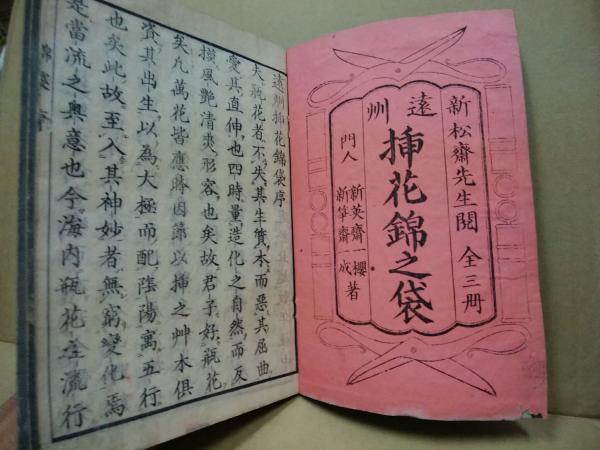 新松齋先生閲 全三冊
遠州
挿花錦之袋
門人
新英齋一櫻
新笋齋一成
著
遠州挿花錦袋序
夫瓶花者不失其生質本而惡其屈曲
愛其直伸也四時量造化之自然而反
摸風艶清爽形容也矣故君子好瓶花
矣凢萬花皆應時因葉以挿之艸木俱
資其出生以為大極而配陰陽寓五行
也矣此故至入其神妙者無窮變化焉
是當流之奥意也今海内瓶花在流行